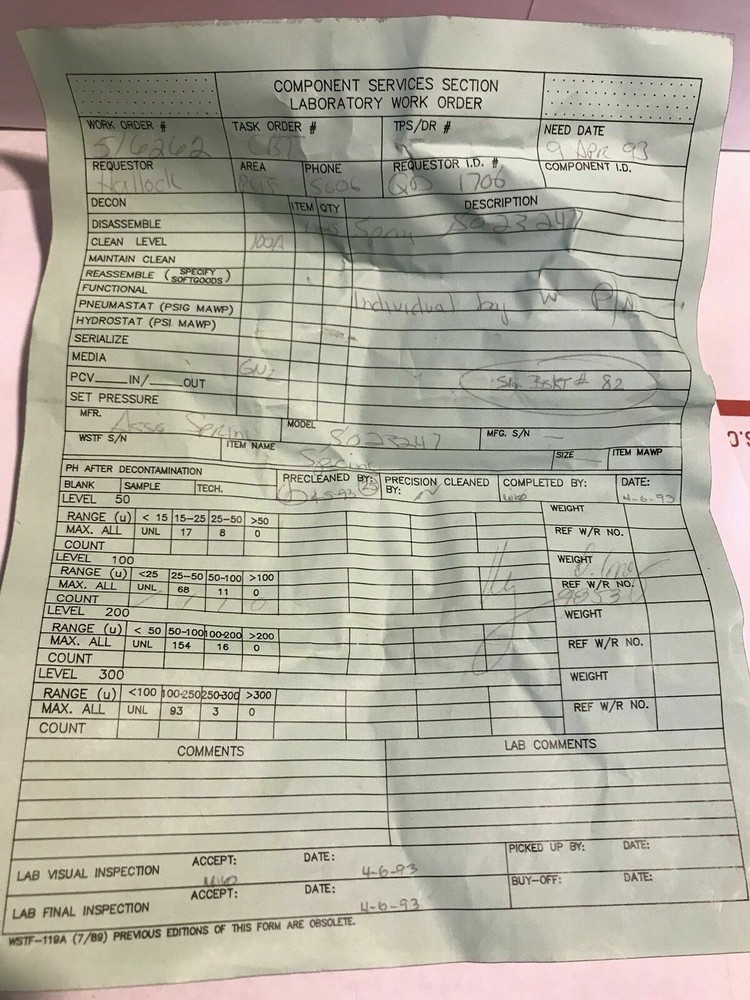 COMPONENT SERVICES SECTION
LABORATORY WORK ORDER
WORK ORDER # TASK ORDER # TPS/DR # NEED DATE
516262 CBT 9 APR 93
REQUESTOR AREA PHONE REQUESTOR I.D. # COMPONENT I.D.
Hallock 5606 1706
DECON ITEM QTY DESCRIPTION
DISASSEMBLE 8023247
CLEAN LEVEL 100A
MAINTAIN CLEAN
REASSEMBLE (SPECIFY SOFTGOODS)
FUNCTIONAL Individual bag W P/N
PNEUMASTAT (PSIG MAWP)
HYDROSTAT (PSI MAWP)
SERIALIZE
MEDIA GN2
PCV____IN/____OUT # 82
SET PRESSURE
MFR. MODEL MFG. S/N
Asso Spring 8023247
WSTF S/N ITEM NAME SIZE ITEM MAWP
Spring
PH AFTER DECONTAMINATION PRECLEANED BY: PRECISION CLEANED BY: COMPLETED BY: DATE:
BLANK SAMPLE TECH. 4-5-93 4-6-93
LEVEL 50 WEIGHT
RANGE (u) < 15 15-25 25-50 >50
MAX. ALL UNL 17 8 0 REF W/R NO.
COUNT
LEVEL 100 WEIGHT
RANGE (u) <25 25-50 50-100 >100
MAX. ALL UNL 68 11 0 REF W/R NO.
COUNT
LEVEL 200 WEIGHT
RANGE (u) < 50 50-100 100-200 >200
MAX. ALL UNL 154 16 0 REF W/R NO.
COUNT
LEVEL 300 WEIGHT
RANGE (u) <100 100-250 250-300 >300
MAX. ALL UNL 93 3 0 REF W/R NO.
COUNT
COMMENTS LAB COMMENTS
LAB VISUAL INSPECTION ACCEPT: DATE: 4-6-93 PICKED UP BY: DATE:
LAB FINAL INSPECTION ACCEPT: DATE: 4-6-93 BUY-OFF: DATE:
WSTF-119A (7/89) PREVIOUS EDITIONS OF THIS FORM ARE OBSOLETE.